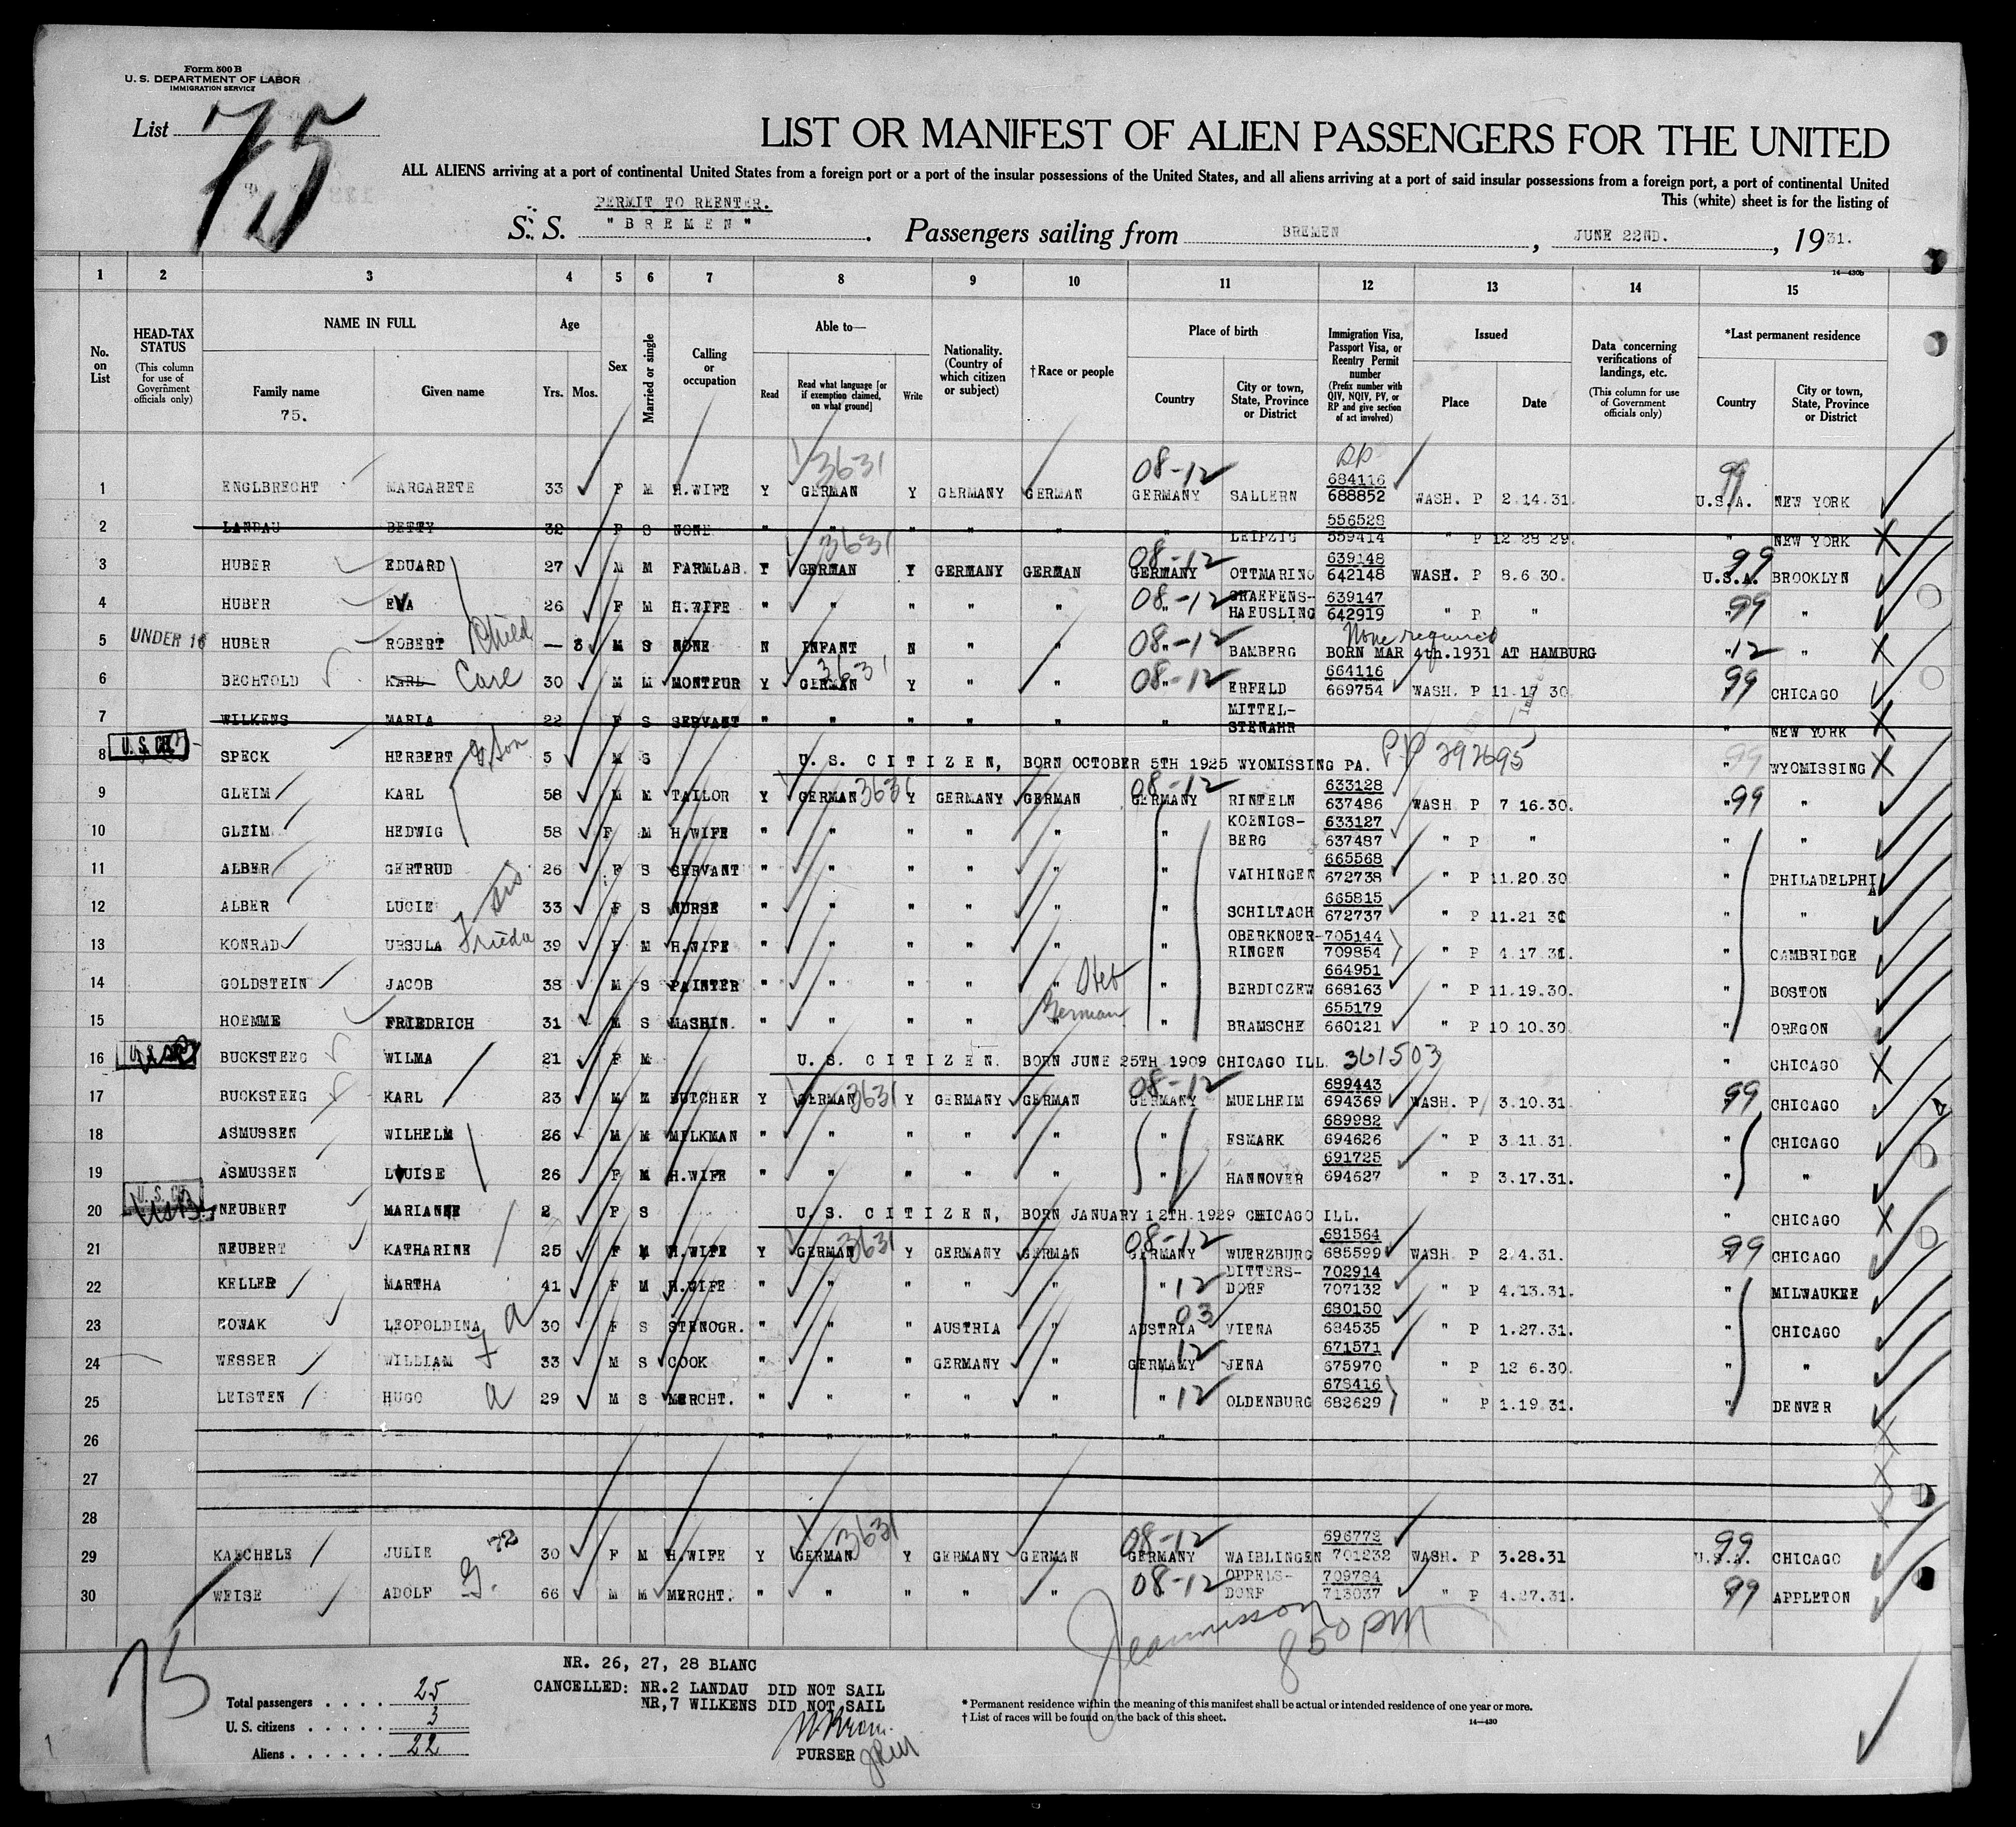 Form 500 B
U. S. DEPARTMENT OF LABOR
IMMIGRATION SERVICE
List 75
LIST OR MANIFEST OF ALIEN PASSENGERS FOR THE UNITED
ALL ALIENS arriving at a port of continental United States from a foreign port or a port of the insular possessions of the United States, and all aliens arriving at a port of said insular possessions from a foreign port, a port of continental United
This (white) sheet is for the listing of
PERMIT TO REENTER.
S. S. "BREMEN". Passengers sailing from BREMEN, JUNE 22ND., 1931.
14—430b
1 2 3 4 5 6 7 8 9 10 11 12 13 14 15
No. on List
HEAD-TAX STATUS
(This column for use of Government officials only)
NAME IN FULL
Family name
75.
Given name
Age
Yrs. Mos.
Sex
Married or single
Calling or occupation
Able to—
Read
Read what language [or if exemption claimed, on what ground]
Write
Nationality. (Country of which citizen or subject)
† Race or people
Place of birth
Country
City or town, State, Province or District
Immigration Visa, Passport Visa, or Reentry Permit number
(Prefix number with QIV, NQIV, PV, or RP and give section of act involved)
Issued
Place
Date
Data concerning verifications of landings, etc.
(This column for use of Government officials only)
*Last permanent residence
Country
City or town, State, Province or District
1 ENGLBRECHT MARGARETE 33 F M H.WIFE Y GERMAN 3631 Y GERMANY GERMAN 08-12 GERMANY SALLERN 684116 688852 WASH. P 2.14.31. 99 U.S.A. NEW YORK
2 LANDAU BETTY 32 F S NONE " " " " " " LEIPZIG 556528 559414 " P 12 28 29. " NEW YORK X
3 HUBER EDUARD 27 M M FARMLAB. Y GERMAN 3631 Y GERMANY GERMAN 08-12 GERMANY OTTMARING 639148 642148 WASH. P 8.6 30. 99 U.S.A. BROOKLYN
4 HUBER EVA 26 F M H.WIFE " " " " " 08-12 " GRAEFENS-HAEUSLING 639147 642919 " P " 99 " "
5 UNDER 16 HUBER ROBERT Child — 3 M S NONE N INFANT N " " 08-12 " BAMBERG None required BORN MAR 4th.1931 AT HAMBURG " 12 " X
6 BECHTOLD KARL Carl 30 M M MONTEUR Y GERMAN 3631 Y " " 08-12 " ERFELD 664116 669754 WASH. P 11.17 30. 99 CHICAGO
7 WILKENS MARIA 22 F S SERVANT " " " " " " MITTEL-STENAHR " NEW YORK X
8 U. S. CIT SPECK HERBERT 5 M S U. S. CITIZEN, BORN OCTOBER 5TH 1925 WYOMISSING PA. PP 292695 " 99 WYOMISSING X
9 GLEIM KARL 58 M M TAILOR Y GERMAN 3631 Y GERMANY GERMAN 08-12 GERMANY RINTELN 633128 637486 WASH P 7 16.30. " 99 "
10 GLEIM HEDWIG 58 F M H.WIFE " " " " " " KOENIGS-BERG 633127 637487 " P " " "
11 ALBER GERTRUD 26 F S SERVANT " " " " " " VAIHINGEN 665568 672738 " P 11.20.30 " PHILADELPHIA
12 ALBER LUCIE sis 33 F S NURSE " " " " " " SCHILTACH 665815 672737 " P 11.21 30 " "
13 KONRAD URSULA Frieda 39 F M H.WIFE " " " " " " OBERKNOER-RINGEN 705144 709854 " P 4.17 31. " CAMBRIDGE
14 GOLDSTEIN JACOB 38 M S PAINTER " " " " " Heb " BERDICZEW 664951 668163 " P 11.19.30. " BOSTON
15 HOEMME FRIEDRICH 31 M S MASHIN. " " " " " German " BRAMSCHE 655179 660121 " P 10 10.30. " OREGON
16 BUCKSTEEG WILMA 21 F M U. S. CITIZEN. BORN JUNE 25TH 1909 CHICAGO ILL. 361503 " CHICAGO X
17 BUCKSTEEG KARL 23 M M BUTCHER Y GERMAN 3631 Y GERMANY GERMAN 08-12 GERMANY MUELHEIM 689443 694369 WASH. P 3.10.31. 99 CHICAGO
18 ASMUSSEN WILHELM 26 M M MILKMAN " " " " " " ESMARK 689982 694626 " P 3.11.31. " CHICAGO
19 ASMUSSEN LOUISE 26 F M H.WIFE " " " " " " HANNOVER 691725 694627 " P 3.17.31. " "
20 U. S. CIT USB NEUBERT MARIANNE 2 F S U. S. CITIZEN, BORN JANUARY 12TH.1929 CHICAGO ILL. " CHICAGO X
21 NEUBERT KATHARINE 25 F M H.WIFE Y GERMAN 3631 Y GERMANY GERMAN 08-12 GERMANY WUERZBURG 681564 685599 WASH P 2.4.31. 99 CHICAGO
22 KELLER MARTHA 41 F M H.WIFE " " " " " " 12 DITTERS-DORF 702914 707132 " P 4.13.31. " MILWAUKEE
23 NOWAK LEOPOLDINA a 30 F S STENOGR. " " " AUSTRIA " 03 AUSTRIA VIENA 680150 684535 " P 1.27.31. " CHICAGO
24 WESSER WILLIAM F 33 M S COOK " " " GERMANY " 12 GERMANY JENA 671571 675970 " P 12 6.30. " "
25 LEISTEN HUGO a 29 M S MERCHT. " " " " " " 12 OLDENBURG 678416 682629 " P 1.19 31. " DENVER
26 " " " " " "
27
28
29 KAECHELE JULIE 72 30 F M H.WIFE Y GERMAN 3631 Y GERMANY GERMAN 08-12 GERMANY WAIBLINGEN 696772 701232 WASH. P 3.28.31 99 U.S.A. CHICAGO
30 WEISE ADOLF G. 66 M M MERCHT. " " " " " 08-12 OPPELS-DORF 709784 713037 " P 4.27.31. 99 APPLETON
850 PM
75
NR. 26, 27, 28 BLANC
CANCELLED: NR.2 LANDAU DID NOT SAIL
NR,7 WILKENS DID NOT SAIL
PURSER
Total passengers . . . . 25
U. S. citizens . . . . . 3
Aliens . . . . . . 22
* Permanent residence within the meaning of this manifest shall be actual or intended residence of one year or more.
† List of races will be found on the back of this sheet.
14—430